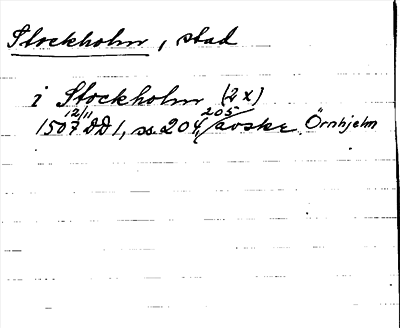 Stockholm, stad
i Stockholm (2 x)
12/11 205
1507 DD 1, ss. 204, avskr. Örnhjelm